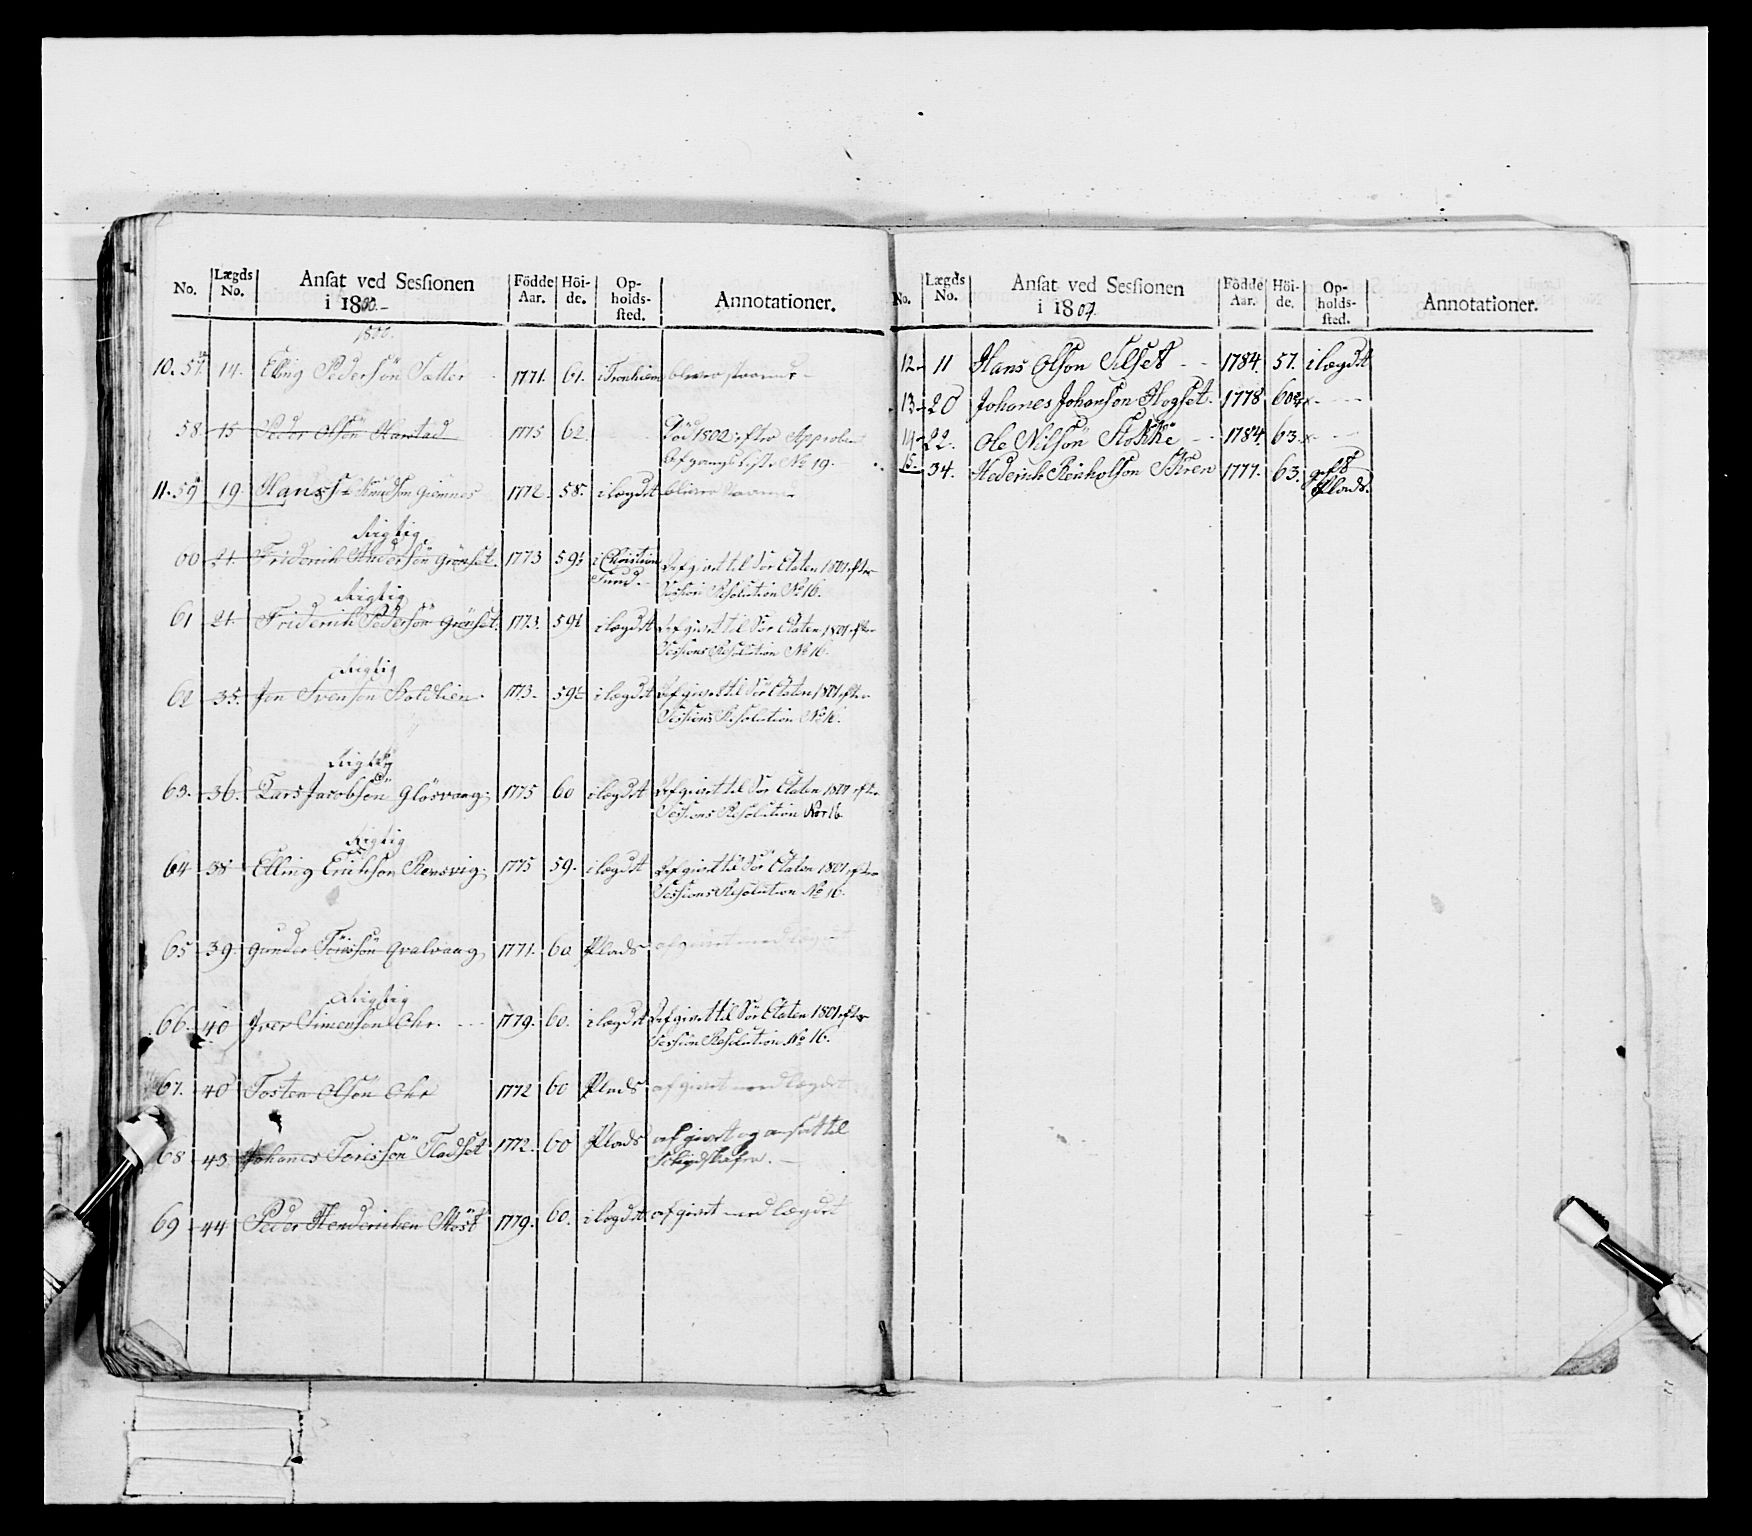 No. Lægds No. Ansat ved Sessionen i 1800.- Födde Aar. Höide. Opholdssted. Annotationer.
1800.
10. 57. 14. Elling Pedersön Sætter 1771. 61. i Tronhiem bliver staaende
58 15 Peder Olsön Harstad 1775 62. Död 1802 efter Approberet
Afgangs List. No 19.
11. 59 19. Hans Knudsön Giemnes 1772. 58. i lægdet bliver staaende
Rigtig
60 21. Friderich Andersön Grönset. 1773 59½ i Christian Sund. Afgivet til Sör Etaten 1801 efter
Session Resolution No 16.
Rigtig
61 21. Friderich Pedersön Grönset. 1773. 59½ i lægdet Afgivet til Sör Etaten 1801 efter
Sessions Resolution No 16.
Rigtig
62 35. Jon Svensön Boldlien. 1773. 59½ i lægdet Afgivet til Sör Etaten 1801 efter
Sessions Resolution No 16.
Rigtig
63. 36. Lars Jacobsön Glösvaag. 1775 60 i lægdet Afgivet til Sör Etaten 1801 efter
Sessions Resolution No 16
Rigtig
64 38 Elling Erichsön Rensvig. 1775 59. i lægdet Afgivet til Sör Etaten 1801 efter
Sessions Resolution No 16.
65 39. Gunder Törissön Qvalvaag 1771. 60 Plads afgivet med lægdet
Rigtig
66. 40 Iver Simensön Ohr. 1779. 60. i lægdet Afgivet til Sör Etaten 1801 efter
Session Resolution No 16.
67. 40 Tosten Olsön Ohr 1772 60 Plads afgivet med lægdet
68 43 Johanes Torissön Fladset 1772. 60 Plads afgivet og ansat til
69 44 Peder Henderichsen 1779. 60. i lægdet afgivet med lægdet
No. Lægds No. Ansat ved Sessionen i 1804. Födde Aar. Höide. Opholdssted. Annotationer.
12. 11 Hans Olsön Silset 1784. 57. i lægdet
13. 20 Johanes Johansön Hogset. 1778 60¾
14. 22. Ole Nilsön Stokke 1784 63.
15. 34. Hederich Reinholsön 1777. 63. Plads.